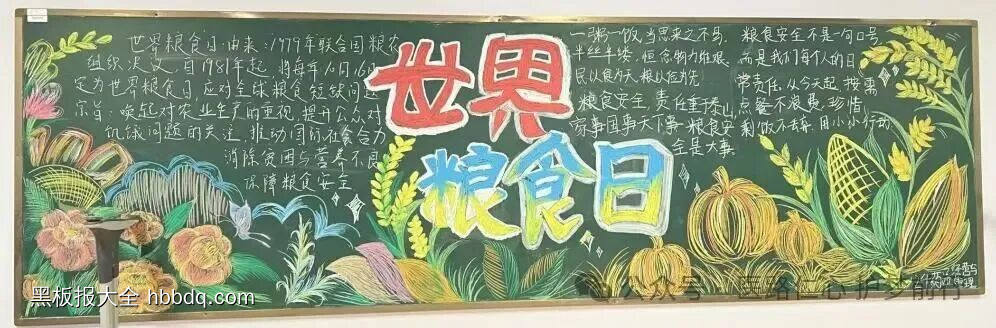 世界粮食日由来:1979年联合国粮农
组织决议,自1981年起,将每年10月16日
定为世界粮食日,应对全球粮食短缺问题
宗旨:唤起对农业生产的重视,提升公众对
饥饿问题的关注,推动国际社会合力
消除贫困与营养不良
保障粮食安全
世界
粮食日
一粥一饭,当思来之不易,
半丝半缕,恒念物力维艰
民以食为天,粮以佢为先
粮食安全,责任重于泰山,
家事国事天下事 粮食安
全是大事
粮食安全不是一句口号
而是我们每个人的日
常责任,从今天起,按需
点餐不浪费,珍惜
剩饭不丢弃,用小小行动
黑板报大全 hbbdq.com
公众号